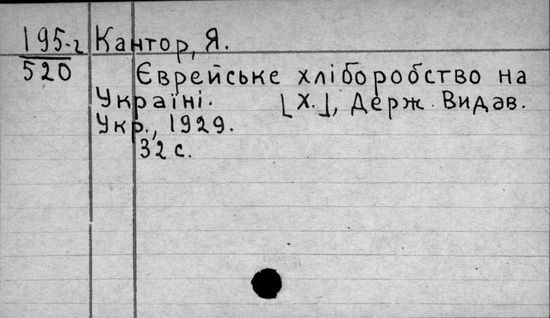 195-г Кантор, Я.
520
Єврейське хліборобство на
Україні. [Х.], Держ. Видав.
Укр., 1929.
32 с.